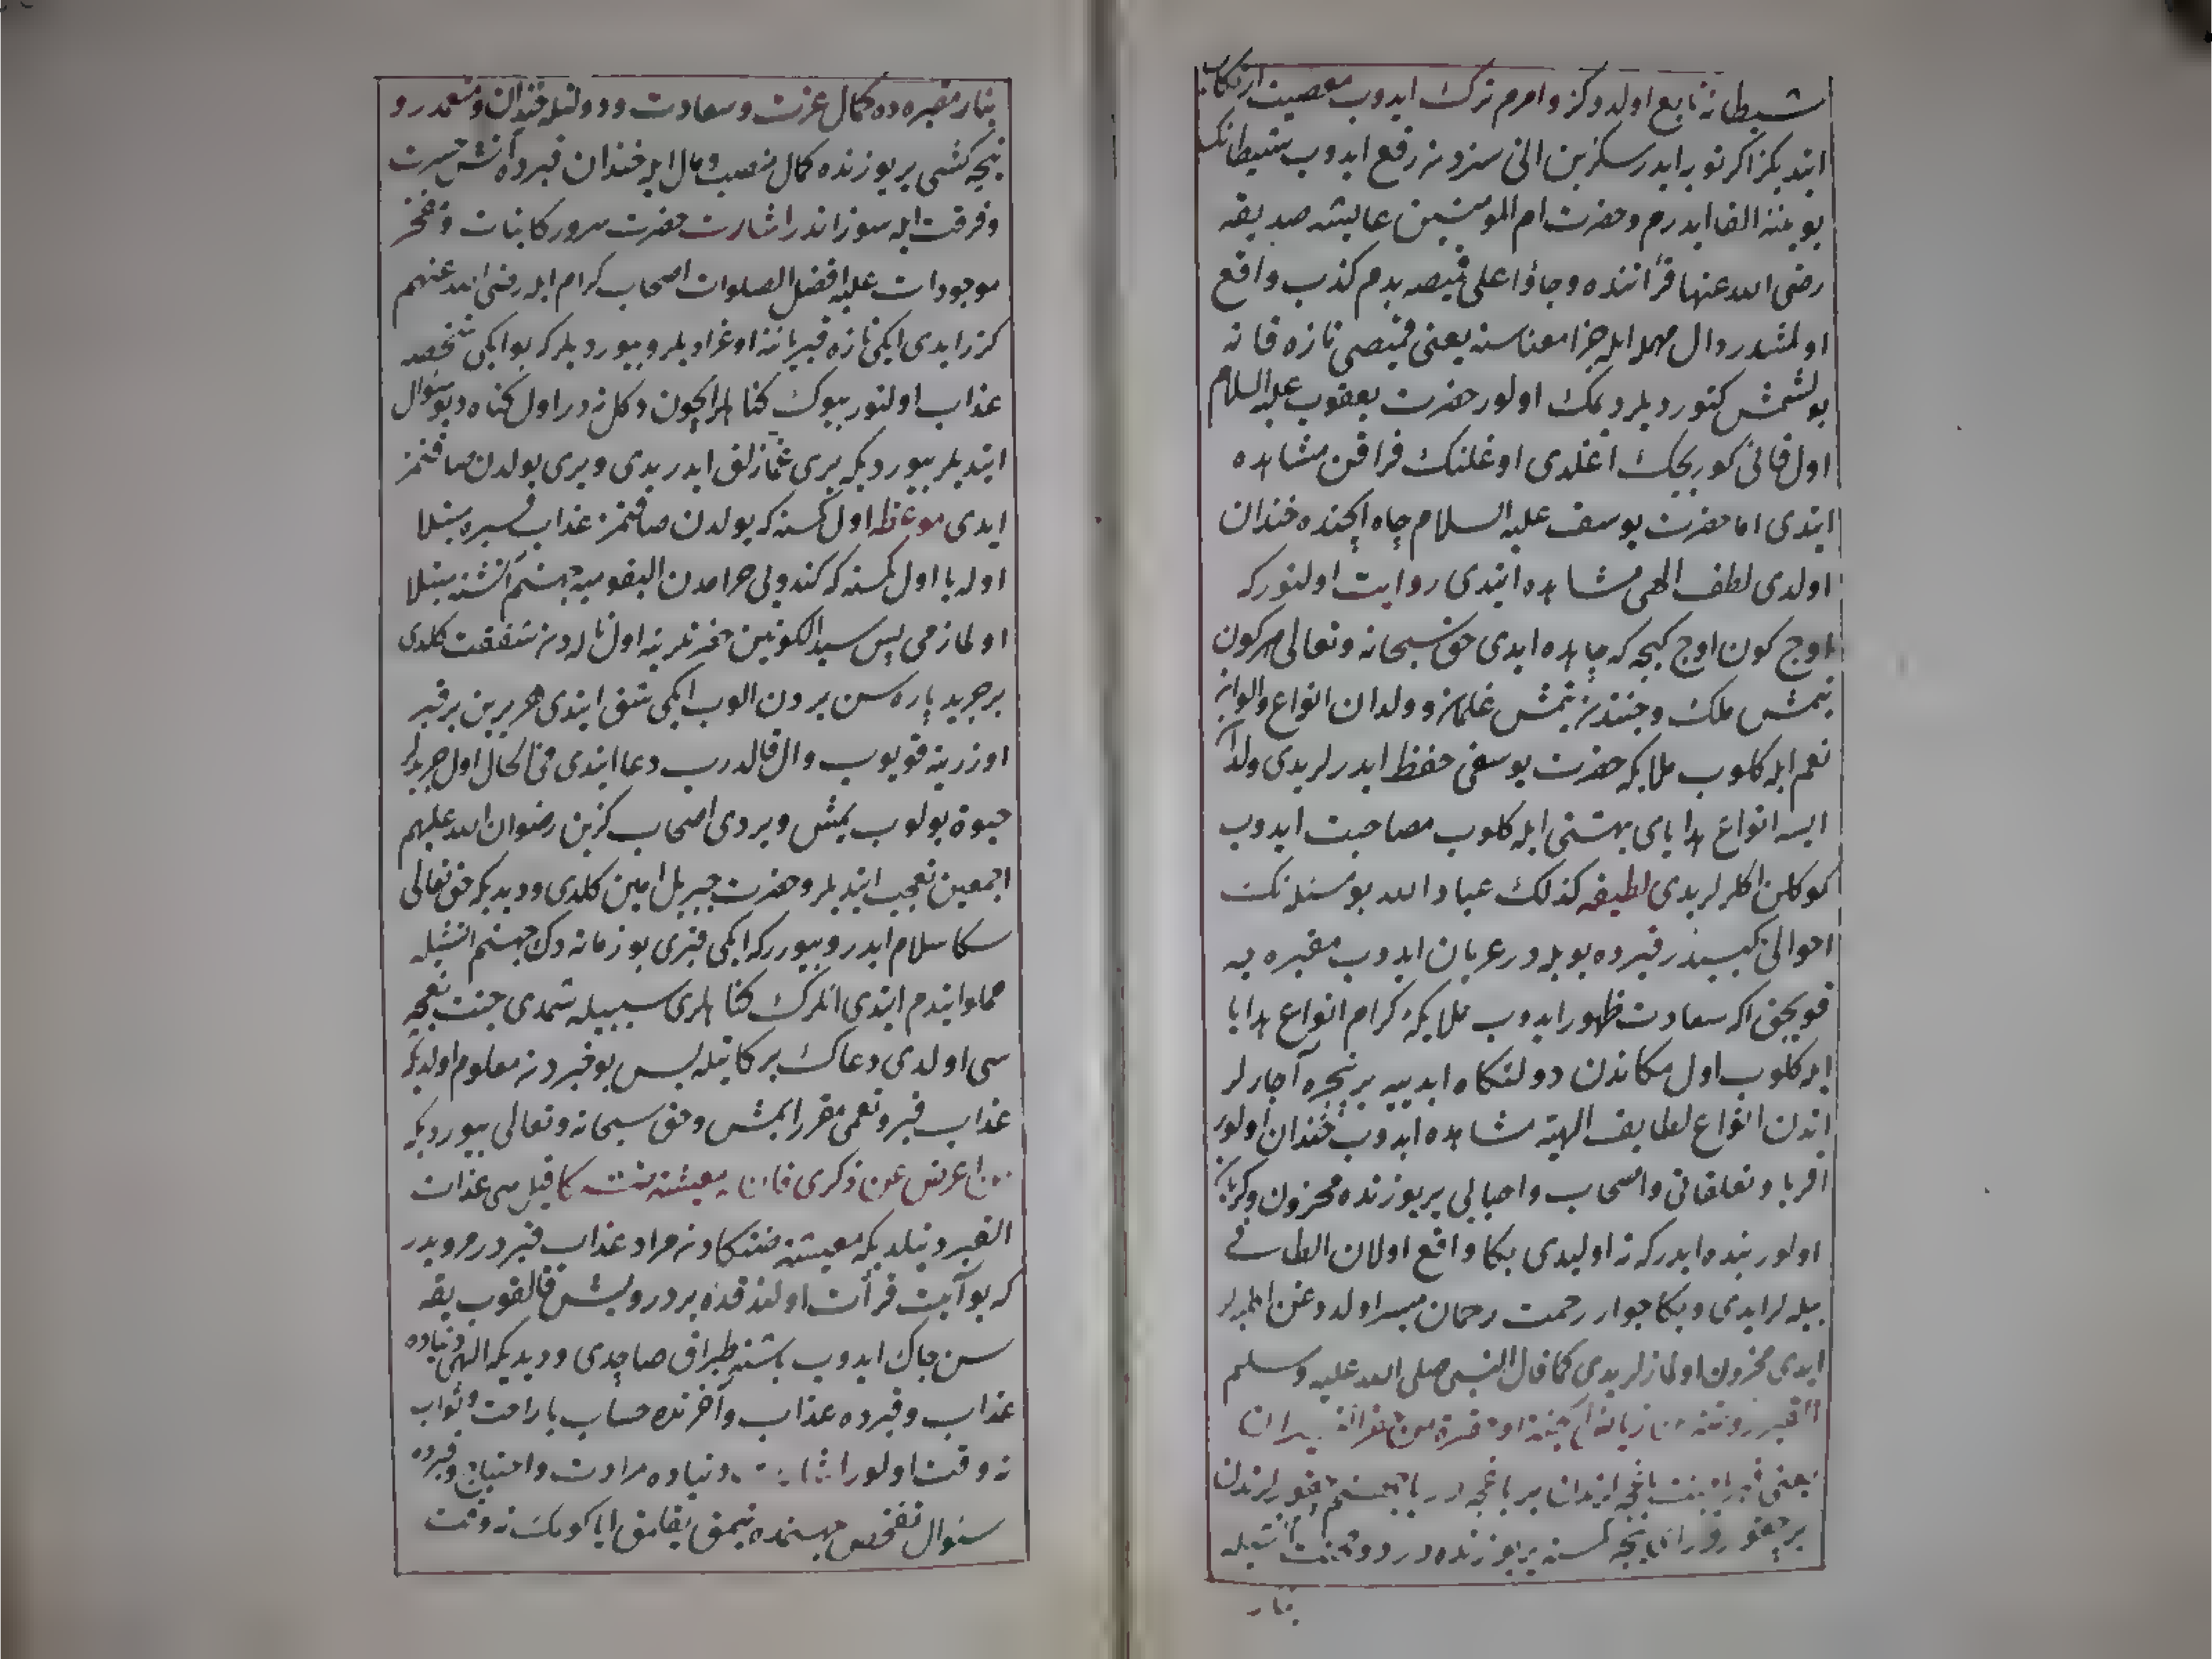 شیطانه تابع اولدوکز و امرم ترک ایدوب معصیت ارتکاب
ایتدیکز اکر توبه ایدرسکز بن انی سزدن رفع ایدوب شیطانک
بویننه القا ایدرم و حضرت ام المومنین عایشه صدیقه
رضی الله عنها قرأتنده وجاؤا علی قمیصه بدم کذب واقع
اولمشدر دال مهمله ایله جزا معناسنه یعنی قمیصی تازه قانه
بولشمش کتوردیلر دیمک اولور حضرت یعقوب علیه السلام
اول قانی کوریجک اغلدی اوغلنک فراقن مشاهده
ایتدی اما حضرت یوسف علیه السلام چاه ایچنده خندان
اولدی لطف الهی مشاهده ایتدی روایت اولنور که
اوج کون اوج کیجه که چاهده ایدی حق سبحانه وتعالی هر کون
یتمش ملک و جنتدن یتمش غلمان و ولدان انواع و الوان
نعم ایله کلوب ملایکه حضرت یوسفی حفظ ایدرلریدی ولدان
ایسه انواع هدایای بهشتی ایله کلوب مصاحبت ایدوب
کوکلن اکلرلریدی لطیفه کذلک عباد الله بو مسئله نک
احوالی کیبیدر قبرده بویله در عریان ایدوب مقبره یه
قویجق اکر سعادت ظهور ایدوب ملایکه کرام انواع هدایا
ایله کلوب اول مکاندن دولتکاه ابدییه بر پنجره آچارلر
اندن انواع لطایف الهیه مشاهده ایدوب خندان اولور
اقربا و تعلقاتی و اصحاب و احبابی یر یوزنده محزون و کریان
اولور بنده ایدر که نه اولیدی بکا واقع اولان الطافی
بیله لر ایدی و بکا جوار رحمت رحمان میسر اولدوغن اکلرلر
ایدی محزون اولمازلریدی کما قال النبی صلی الله علیه وسلم
القبر روضة من ریاض الجنة او حفرة من حفر النیران
یعنی قبر جنت باغچه لرندن بر باغچه در یا جهنم چقورلرندن
بر چقوردر ای نیجه کسنه یر یوزنده درد و محنت آتشیله
یتار
یتار مقبره ده کمال عزت و سعادت و دولتله خندان و متعمدر و
نیجه کشی یر یوزنده کمال منصب و مال ایله خندان قبرده آتش حسرت
و فرقت ایله سوزاندر اشارت حضرت سرور کاینات و مفخر
موجودات علیه افضل الصلوات اصحاب کرام ایله رضی الله عنهم
کزر ایدی ایکی تازه قبر یاننه اوغرادیلر و بیوردیلر که بو ایکی شخصه
عذاب اولنور بیوک کناهلر ایچون دکل نه در اول کناه دیو سؤال
ایتدیلر بیوردیکه بری غمازلق ایدریدی و بری بولدن صاقنمز
ایدی موعظه اول کسنه که بولدن صاقنمز عذاب قبره مبتلا
اوله یا اول کسنه که کندویی حرامدن الیقومیه جهنم آتشنه مبتلا
اولمازمی پس سید الکونین حضرتلرینه اول ناله دن شفقت کلدی
بر جرید پاره سن یردن الوب ایکی شق ایتدی هر برین بر قبر
اوزرینه قویوب و ال قالدرب دعا ایتدی فی الحال اول جریدلر
حیوة بولوب یمش ویردی اصحاب کزین رضوان الله علیهم
اجمعین تعجب ایتدیلر و حضرت جبریل امین کلدی و دیدیکه حق تعالی
سکا سلام ایدر و بیورر که ایکی قبری بو زمانه دک جهنم اتشیله
مملو ایتدم ایتدی انلرک کناهلری سببیله شمدی جنت بغچه
سی اولدی دعاک برکاتیله پس بو قبردن معلوم اولدیکه
عذاب قبر و نعمی مقرر ایمش و حق سبحانه و تعالی بیوردیکه
من اعرض عن ذکری فان له معیشة ضنکا قیل هی عذاب
القبر دینلدیکه معیشة ضنکادن مراد عذاب قبردر مرویدر
که بو آیت قرأت اولندقده بر درویش قالقوب یقه
سن چاک ایدوب باشنه طپراق صاچدی و دیدیکه الهی دنیاده
عذاب و قبرده عذاب و آخرتده حساب یا راحت و ثواب
نه وقت اولور اشارت دنیاده مرادت و احتیاج و قبرده
سؤال تفحص جهنمده یتمق یقلمق ایا کولمک نه وقت